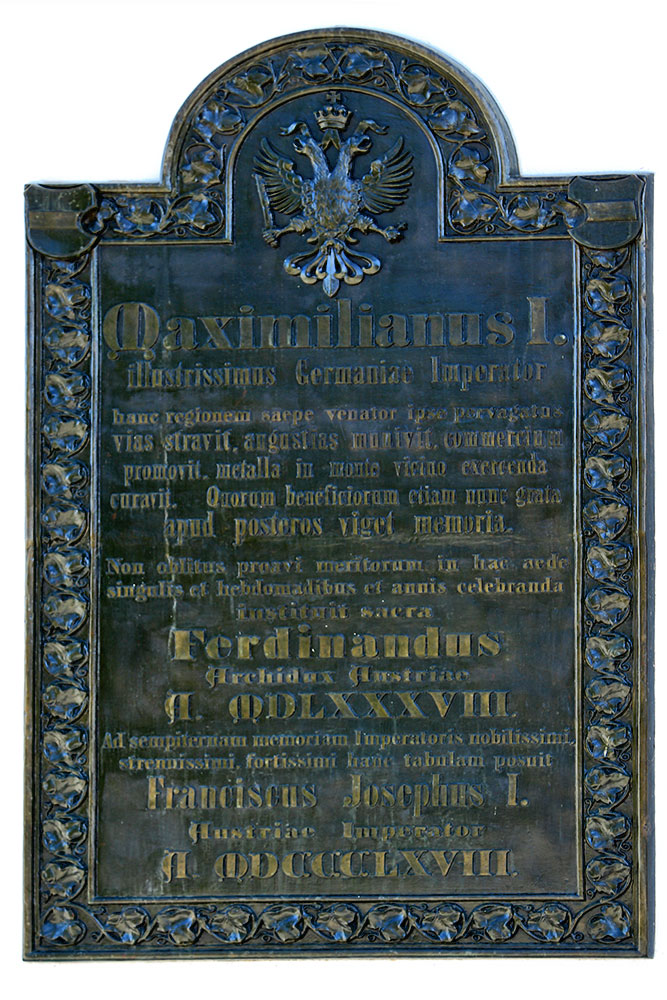 Maximilianus I.
illustrissimus Germaniae Imperator
hanc regionem saepe venator ipse pervagatus
vias stravit, angustias munivit, commercium
promovit, metalla in monte vicino exercenda
curavit. Quorum beneficiorum etiam nunc grata
apud posteros viget memoria.
Non oblitus proavi meritorum in hac aede
singulis et hebdomadibus et annis celebranda
instituit sacra
Ferdinandus
Archidux Austriae
A. MDLXXXVIII.
Ad sempiternam memoriam Imperatoris nobilissimi,
strenuissimi, fortissimi hanc tabulam posuit
Franciscus Josephus I.
Austriae Imperator
A MDCCCCLXVIII.